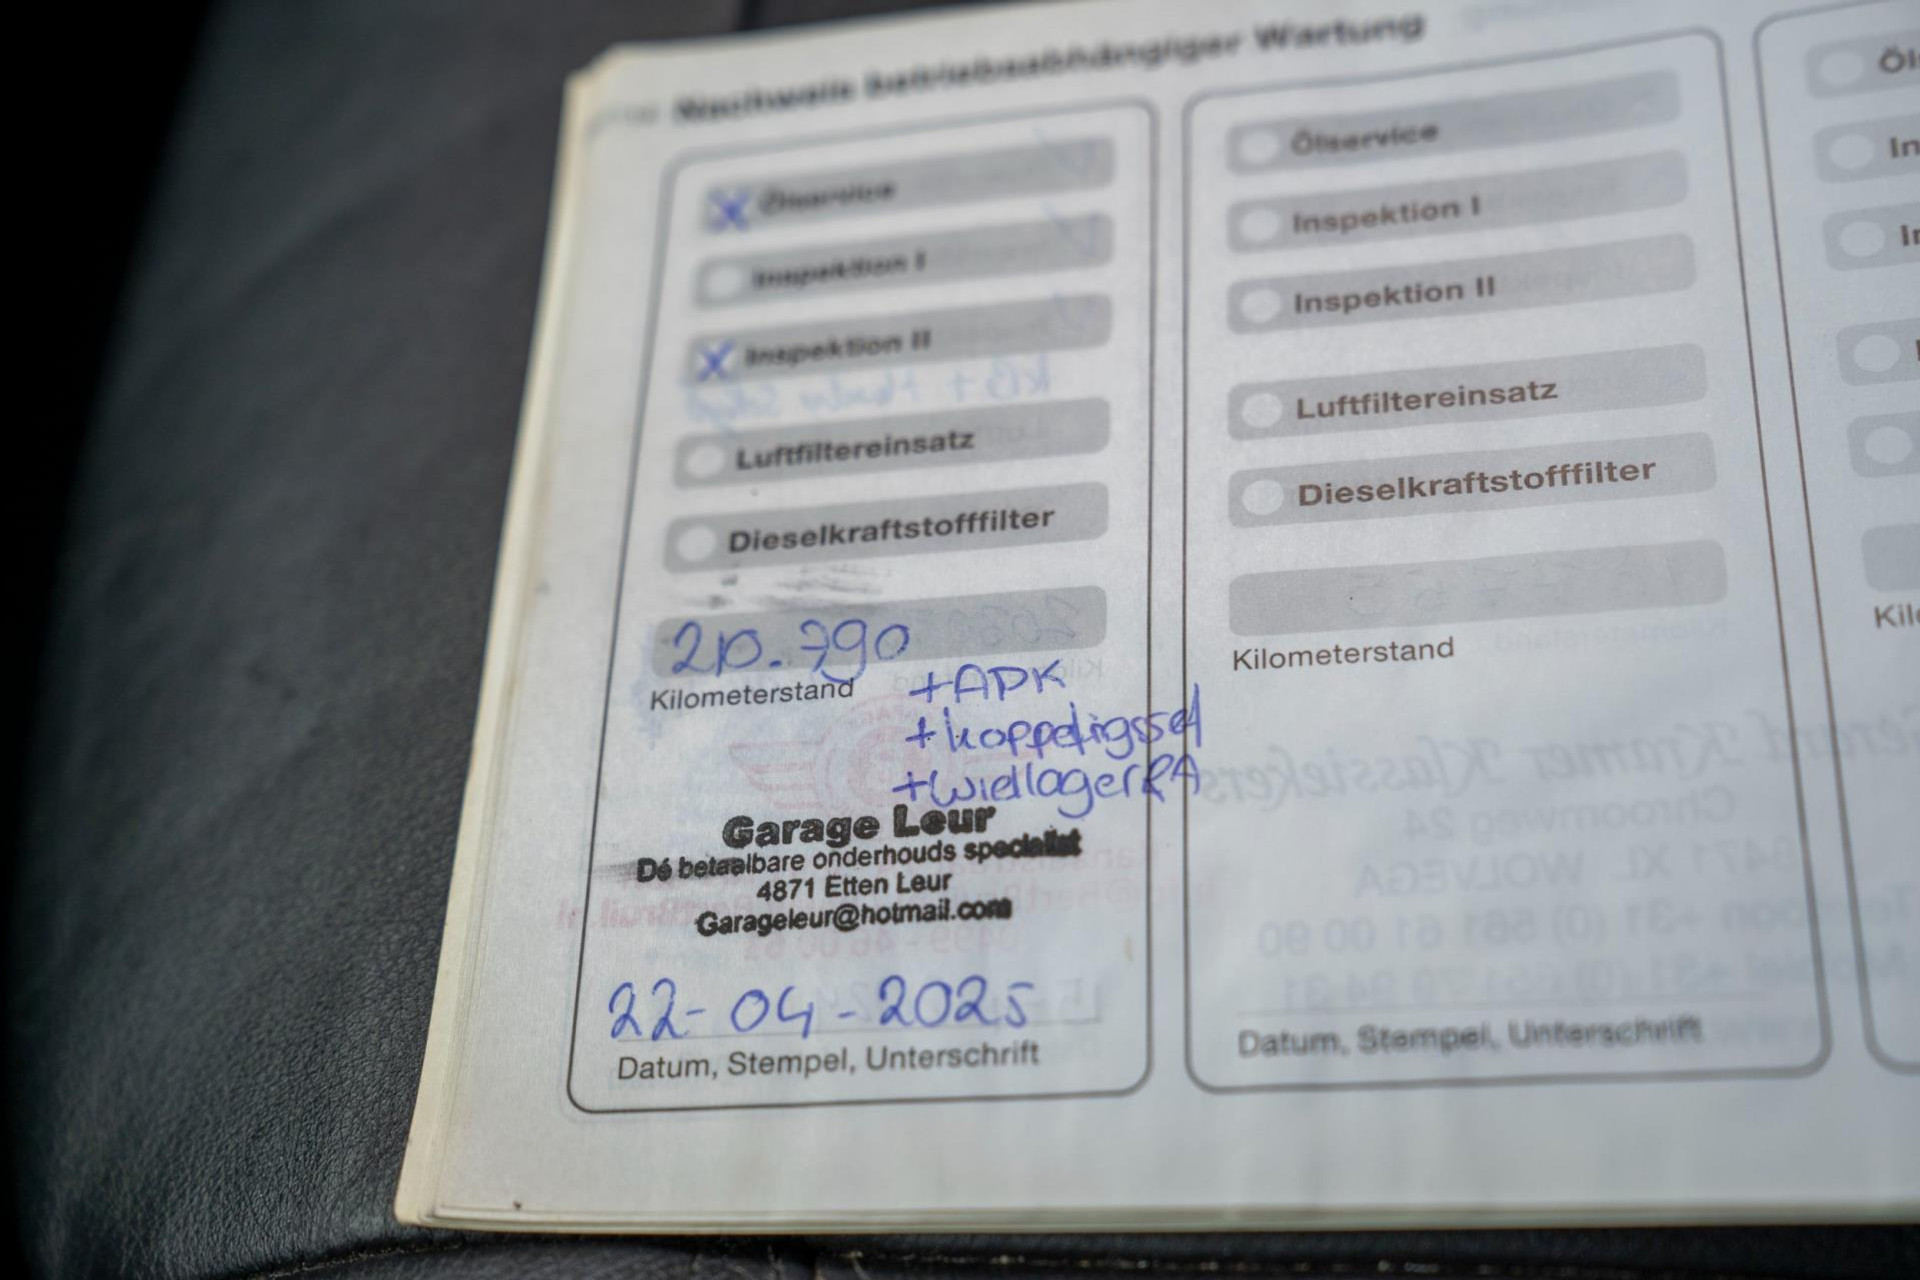 Nachweis betriebsabhängiger Wartung
X Ölservice
Inspektion I
X Inspektion II
Luftfiltereinsatz
Dieselkraftstofffilter
210.790
Kilometerstand
+APK
+koppelingsset
+wiellager RA
Garage Leur
Dé betaalbare onderhouds specialist
4871 Etten Leur
Garageleur@hotmail.com
22-04-2025
Datum, Stempel, Unterschrift
Ölservice
Inspektion I
Inspektion II
Luftfiltereinsatz
Dieselkraftstofffilter
Kilometerstand
Datum, Stempel, Unterschrift